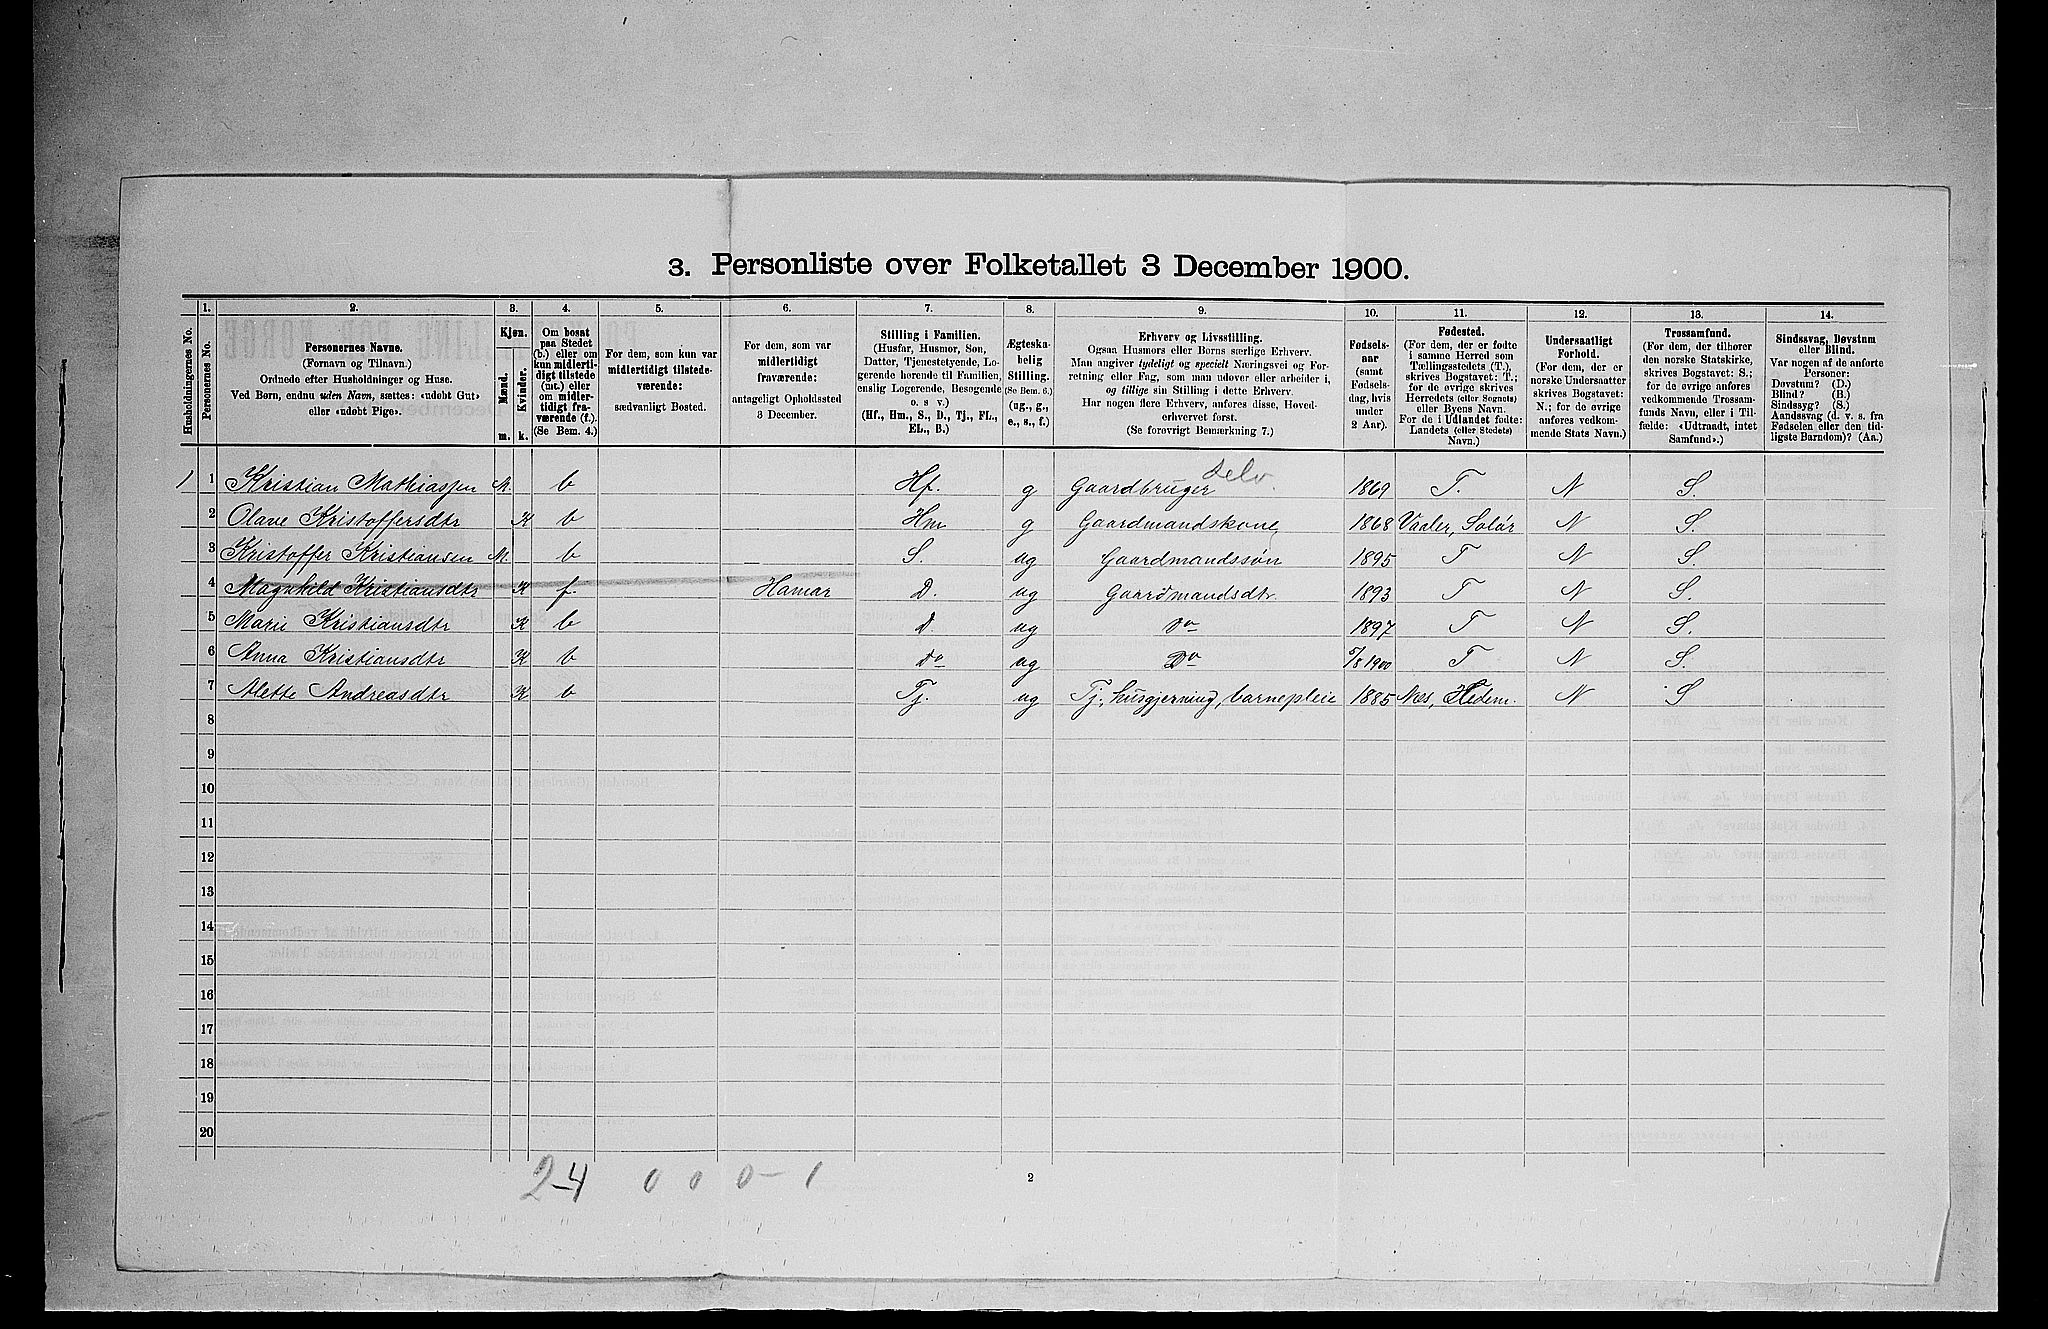 3. Personliste over Folketallet 3 December 1900.
1. 2. 3. 4. 5. 6. 7. 8. 9. 10. 11. 12. 13. 14.
Husholdningernes No.
Personernes No.
Personernes Navne.
(Fornavn og Tilnavn.)
Ordnede efter Husholdninger og Huse.
Ved Børn, endnu uden Navn, sættes: «udøbt Gut»
eller «udøbt Pige».
Kjøn.
Mænd. Kvinder.
m. k.
Om bosat
paa Stedet
(b.) eller om
kun midlerti-
digt tilstede
(mt.) eller
om midler-
tidigt fra-
værende (f.).
(Se Bem. 4.)
For dem, som kun var
midlertidigt tilstede-
værende:
sædvanligt Bosted.
For dem, som var
midlertidigt
fraværende:
antageligt Opholdssted
3 December.
Stilling i Familien.
(Husfar, Husmor, Søn,
Datter, Tjenestetyende, Lo-
gerende hørende til Familien,
enslig Logerende, Besøgende
o. s v.)
(Hf., Hm., S., D., Tj., FL.,
EL., B.)
Ægteska-
belig
Stilling.
(Se Bem. 6.)
(ug., g.,
e., s., f.)
Erhverv og Livsstilling.
Ogsaa Husmors eller Børns særlige Erhverv.
Man angiver tydeligt og specielt Næringsvei og For-
retning eller Fag, som man udøver eller arbeider i,
og tillige sin Stilling i dette Erhverv.
Har nogen flere Erhverv, anføres disse, Hoved-
erhvervet først.
(Se forøvrigt Bemærkning 7.)
Fødsels-
aar
(samt
Fødsels-
dag, hvis
under
2 Aar).
Fødested.
(For dem, der er fødte
i samme Herred som
Tællingsstedets (T.),
skrives Bogstavet: T.;
for de øvrige skrives
Herredets (eller Sognets)
eller Byens Navn.
For de i Udlandet fødte:
Landets (eller Stedets)
Navn.)
Undersaatligt
Forhold.
(For dem, der er
norske Undersaatter
skrives Bogstavet:
N.; for de øvrige
anføres vedkom-
mende Stats Navn.)
Trossamfund.
(For dem, der tilhører
den norske Statskirke,
skrives Bogstavet: S.;
for de øvrige anføres
vedkommende Trossam-
funds Navn, eller i Til-
fælde: «Udtraadt, intet
Samfund».)
Sindssvag, Døvstum
eller Blind.
Var nogen af de anførte
Personer:
Døvstum? (D.)
Blind? (B.)
Sindssyg? (S.)
Aandssvag (d. v. s. fra
Fødselen eller den tid-
ligste Barndom)? (Aa.)
1) 1 Kristian Mathiassen M. b Hf. g Gaardbruger Selv. 1869 T. N S.
2 Olave Kristoffersdtr K b Hm g Gaardmandskone 1868 Vaaler, Solør N S.
3 Kristoffer Kristiansen M. b S. ug Gaardmandssøn 1895 T N S.
4 Magnhild Kristiansdtr K f. Hamar D. ug Gaardmandsdtr. 1893 T N S.
5 Marie Kristiansdtr K b D. ug Do 1897 T N S.
6 Anna Kristiansdtr K b Do ug Do 5/8 1900 T N S.
7 Alette Andreasdtr K b Tj. ug Tj., husgjerning, barnepleie 1885 Nes, Hedem. N S
8
9
10
11
12
13
14
15
16
17
18
19
20
2-4 0 0 0-1
2